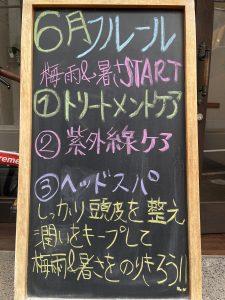 6月 フルール
梅雨&暑さSTART
①トリートメントケア
②紫外線ケア
③ヘッドスパ
しっかり頭皮を整え
潤いをキープして
梅雨&暑さをのりきろう!!